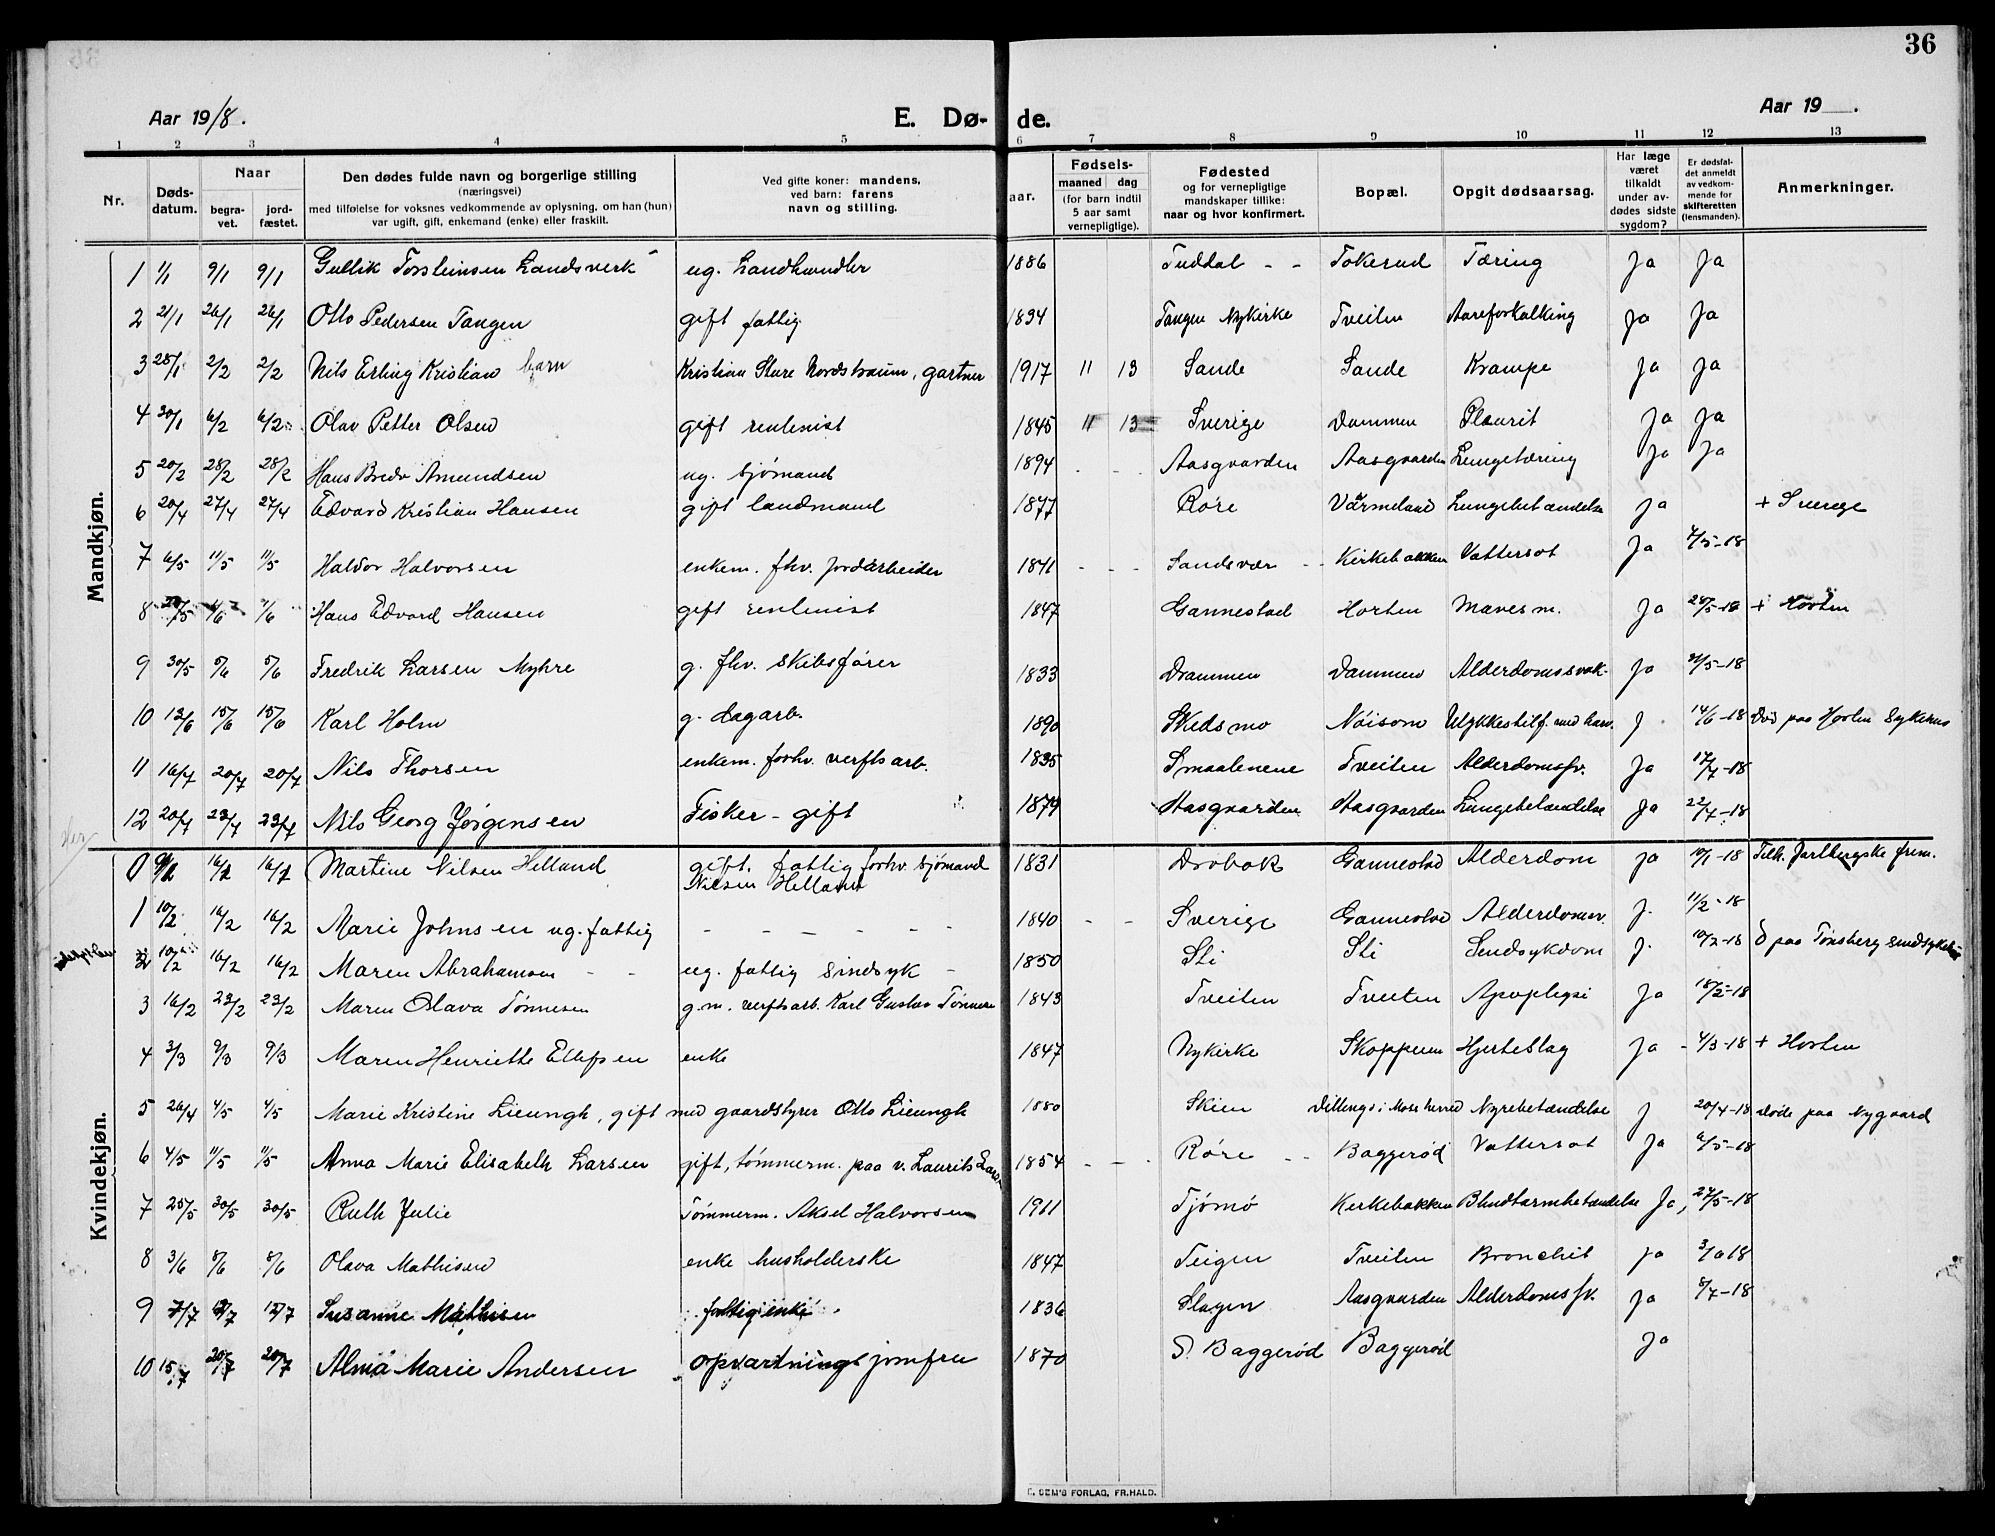 36
Aar 1918. E. Dø- de. Aar 19 .
1 2 3 4 5 6 7 8 9 10 11 12 13
Nr. Døds-datum. Naar begra-vet. jord-fæstet. Den dødes fulde navn og borgerlige stilling (næringsvei) med tilføielse for voksnes vedkommende av oplysning, om han (hun) var ugift, gift, enkemand (enke) eller fraskilt. Ved gifte koner: mandens, ved barn: farens navn og stilling. aar. Fødsels- maaned dag (for barn indtil 5 aar samt vernepligtige). Fødested og for vernepligtige mandskaper tillike: naar og hvor konfirmert. Bopæl. Opgit dødsaarsag. Har læge været tilkaldt under av-dødes sidste sygdom? Er dødsfal-det anmeldt av vedkom-mende for skifteretten (lensmanden). Anmerkninger.
Mandkjøn.
1 1/1 9/1 9/1 Gullik Torsteinsen Landsverk ug. Landhandler 1886 Tuddal - - Tokerud Tæring Ja Ja
2 21/1 26/1 26/1 Otto Pedersen Tangen gift fattig 1834 Tangen Nykirke Tveiten Aareforkalking Ja Ja
3 28/1 2/2 2/2 Nils Erling Kristian barn Kristian Sture Nordstraum, gartner 1917 11 13 Sande Sande Krampe Ja Ja
4 30/1 6/2 6/2 Olav Petter Olsen gift rentenist 1845 11 13 Sverige Dammen Pleurit Ja Ja
5 20/2 28/2 28/2 Hans Bredo Amundsen ug. sjømand 1894 - - - Aasgaarden Aasgaarden Lungetæring Ja Ja
6 20/4 27/4 27/4 Edvard Kristian Hansen gift landmand 1877 Røre Värmeland Lungebetændelse Ja + Sverige
7 6/5 11/5 11/5 Haldor Halvorsen enkem. fhv. jordarbeider 1841 - - - Sandsvær - - Kirkebakken Vattersot Ja 7/5-18
8 28/5 4/6 4/6 Hans Edvard Hansen gift rentenist 1847 Gannestad Horten Maves m. Ja 28/5-18 + Horten
9 30/5 5/6 5/6 Fredrik Larsen Myhre g. fhv. skibsfører 1833 Drammen Dammen Alderdomssvak. Ja 31/5-18
10 12/6 15/6 15/6 Karl Holm g. dagarb. 1890 Skedsmo Nøisom Ulykkestilf. med kan. J. 14/6-18 Død paa Horten Sykehus
11 16/7 20/7 20/7 Nils Thorsen enkem. forhv. verftsarb. 1835 Smaalenene Tveiten Alderdomssv. Ja 17/7-18
12 20/7 23/7 23/7 Nils Georg Jørgensen Fisker - gift 1879 Aasgaarden Aasgaarden Lungebetændelse Ja 22/7-18
Kvindekjøn.
0 9/1 16/1 16/1 Martine Nilsen Helland gift. fattig forhv. sjømand 1831 Drøbak Gannestad Alderdom ja 10/1-18 Tilh. Jarlbergske frim.
Nilsen Helland
1 10/2 16/2 16/2 Marie Johnsen ug. fattig - - - - - - 1840 - - Sverige Gannestad Alderdomsv. J. 11/2-18
2 10/2 16/2 16/2 Maren Abrahamsen - - ug. fattig sindsyk - 1850 Sti Sti Sindsykdom J. 10/2-18 D paa Tønsberg sindsykehus
3 16/2 23/2 23/2 Maren Olava Tønnesen g.m. verftsarb. Karl Gustav Tønnesen 1843 Tveiten Tveiten Apoplexi Ja 18/2-18
4 3/3 9/3 9/3 Maren Henriette Ellefsen enke 1847 Nykirke Skoppum Hjerteslag Ja - 4/3-18 + Horten
5 26/4 4/5 4/5 Marie Kristine Lieungh, gift med gaardstyrer Otto Lieungh 1880 Skien Dillingø i Moss herred Nyrebetændelse J 20/4-18 Døde paa Nygaard
6 4/5 11/5 11/5 Anna Marie Elisabeth Larsen gift, tømmerm. paa v. Laurits Larsen 1854 - - - Røre - - Baggerød Vattersot Ja 6/5-18
7 25/5 30/5 30/5 Ruth Julie Tømmerm. Aksel Halvorsen 1911 Tjømø Kirkebakken Blindtarmbetændelse Ja, 27/5-18
8 3/6 8/6 8/6 Olava Mathisen enke husholderske 1847 Teigen Tveiten Bronchit ja 3/6 18
9 7/7 12/7 12/7 Susanne Mathisen fattig enke 1836 Slagen Aasgaarden Alderdomssv. Ja 8/7-18
10 15/7 20/7 20/7 Alma Marie Andersen opvartningsjomfru 1870 S. Baggerød Baggerød Ja
E. SEM'S FORLAG, FR.HALD.